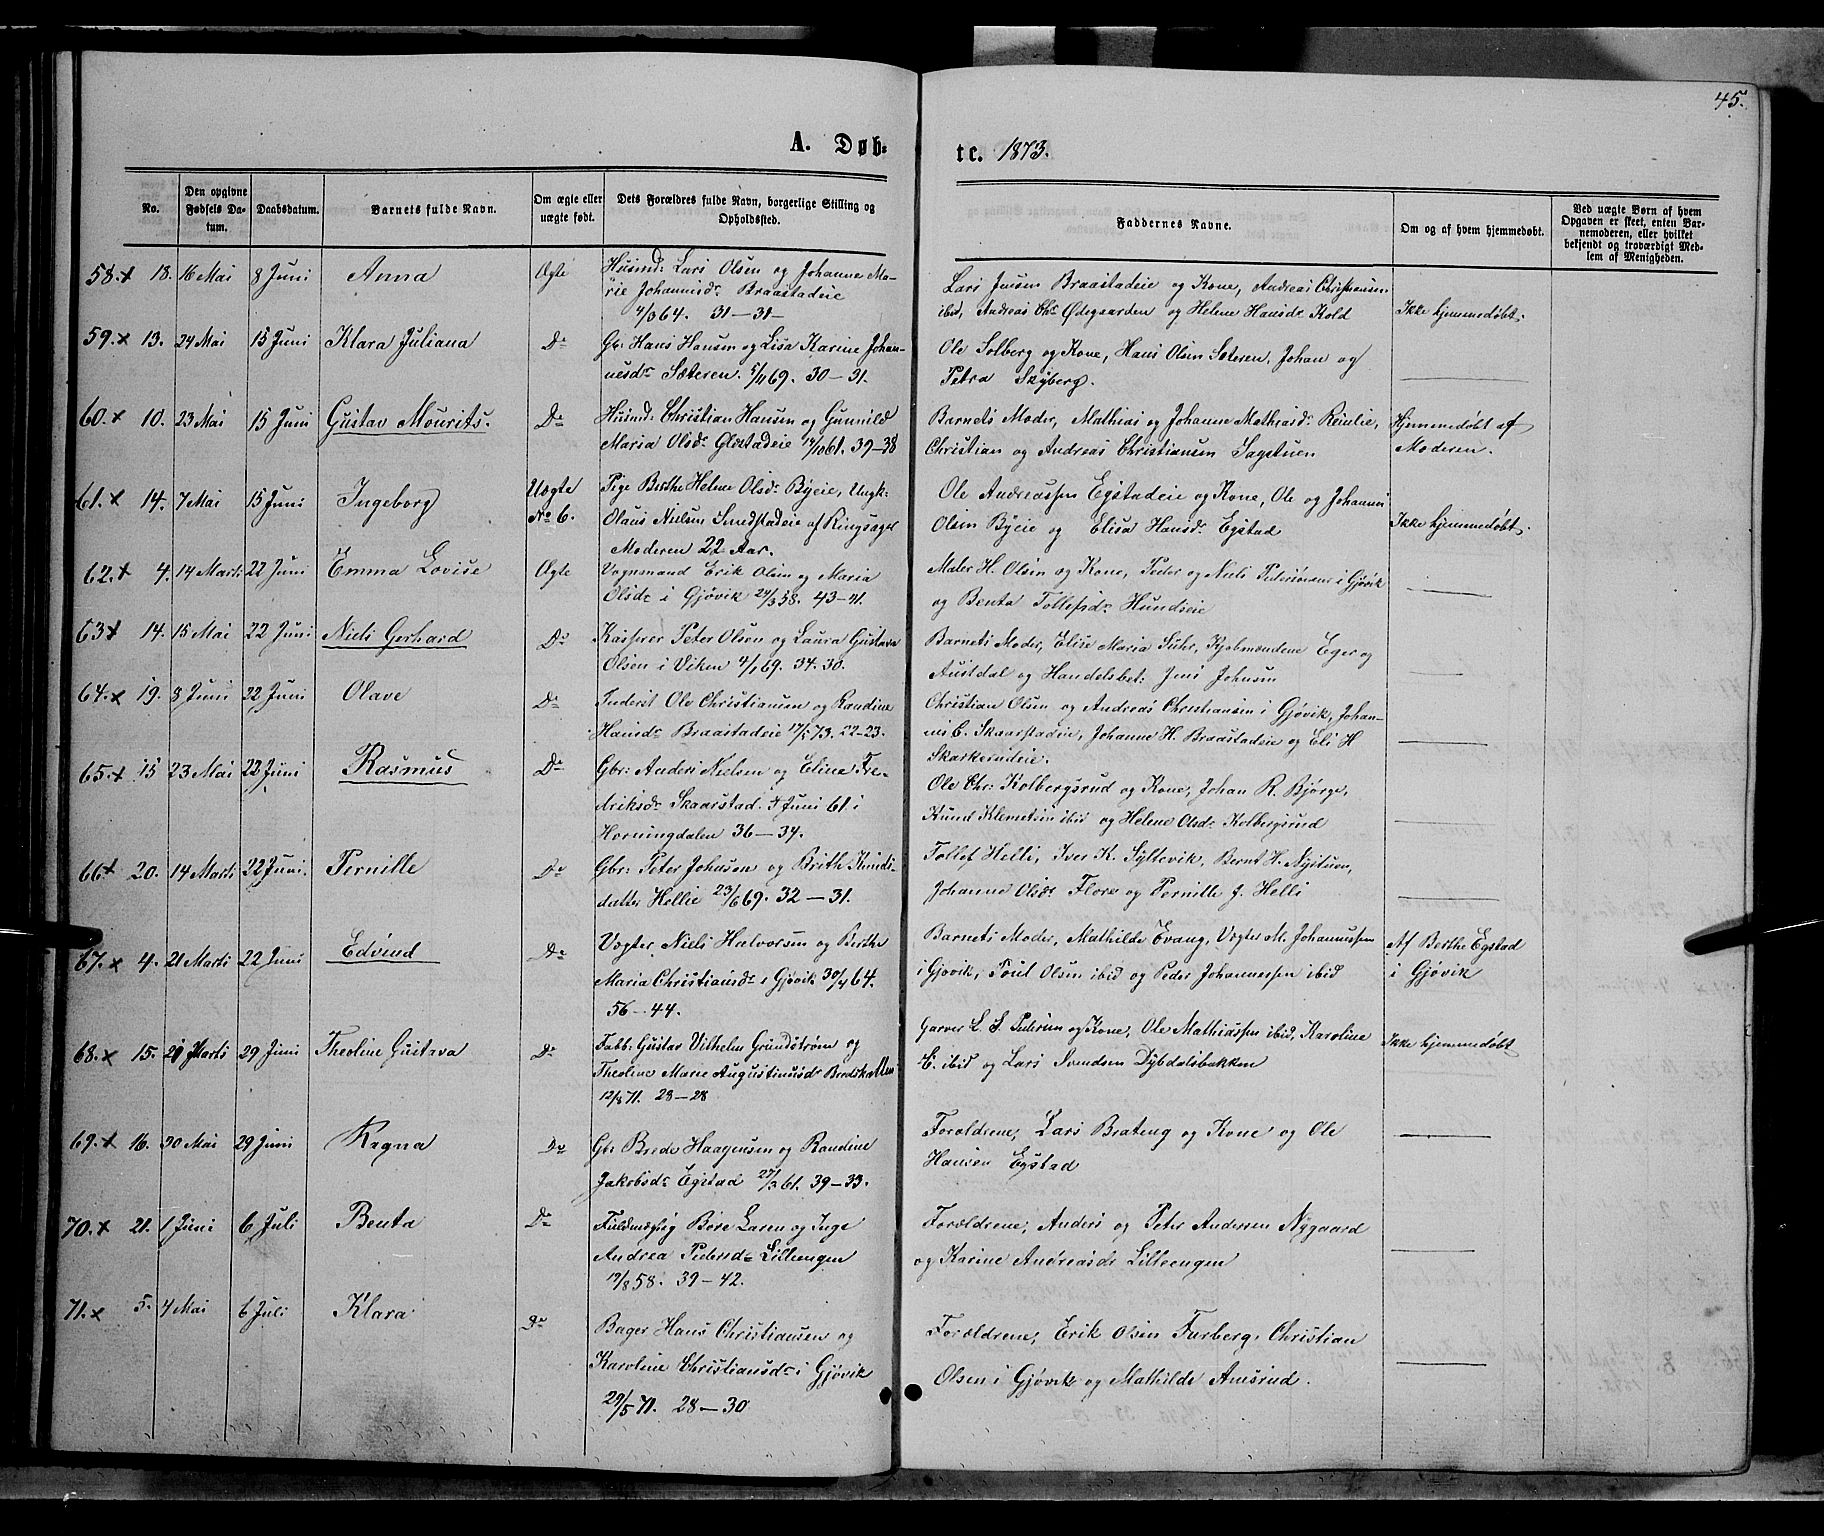 45.
A. Døb-
te. 1873.
No.
Den opgivne Fødsels Da-tum.
Daabsdatum.
Barnets fulde Navn.
Om ægte eller uægte født.
Dets Forældres fulde Navn, borgerlige Stilling og Opholdssted.
Faddernes Navne.
Om og af hvem hjemmedøbt.
Ved uægte Børn af hvem Opgaven er skeet, enten Bar-nemoderen, eller hvilket bekjendt og troværdigt Med-lem af Menigheden.
58.x 18. 16 Mai 8 Juni Anna Ægte Husmd: Lars Olsen og Johanne Ma-
rie Johannisdr Braastadeie
4/3 64. 31-31-
Lars Jensen Braastadeie og Kone, Andreas Christiansen
ibid, Andreas Chr. Ødegaarden og Helene Hansdr Kold
Ikke hjemmedøbt.
59.x 13. 24 Mai 15 Juni Klara Juliana Do Gbr: Hans Hansen og Lisa Karine Johan-
nesdr Sæteren. 5/11 69. 30-31.
Ole Solberg og Kone, Hans Olsen Sæteren, Johan og
Petra Skyberg.
60.x 10. 23 Mai 15 Juni Gustav Mourits. Do Husmd: Christian Hansen og Gunnild
Maria Olsdr Glæstadeie 14/10 61. 39-38
Barnets Moder, Mathias og Johanne Mathiasdr Reinlie,
Christian og Andreas Christiansen Sagstuen
Hjemmedøbt af
Moderen.
61.x 14. 7 Mai 15 Juni Ingeborg Uægte
No 6.
Pige Berthe Helene Olsdr Byeie, Ungk:
Olaus Nielsen Smedstadeie af Ringsager
Moderen 22 Aar.
Ole Andreassen Egstadeie og Kone, Ole og Johannes
Olsen Byeie og Elisa Hansdr Egstad
Ikke hjemmedøbt.
62.x 4. 14 Marts 22 Juni Emma Lovise Ægte Vognmand Erik Olsen og Maria
Olsdr i Gjøvik 24/3 58. 43-41.
Maler H. Olsen og Kone, Peder og Niels Pedersønner i Gjøvik
og Benta Tollefsdr Hundseie
63x 14. 15 Mai 22 Juni Niels Gerhard Do Kasserer Peter Olsen og Laura Gustava
Olsen i Viken 4/1 69. 34-30.
Barnets Moder, Elise Maria Suhr, Kjøbmændene Eger og
Austdal og Handelsbet: Jens Johnsen
64.x 19. 8 Juni 22 Juni Olave Do Inderst Ole Christiansen og Randine
Hansdr Braastadeie 17/5 73. 22-23.
Christian Olsen og Andreas Christiansen i Gjøvik, Johan-
nes C. Skaarstadeie, Johanne H. Braastadeie og Eli H
Skarkerudeie.
65.x 15 23 Mai 22 Juni Rasmus Do Gbr: Anders Nielsen og Eline Fre-
driksdr Skaarstad. 4 Juni 61. i
Horningdalen 36-34.
Ole Chr: Kolbergsrud og Kone, Johan R. Bjørge,
Knud Klemetsen ibid og Helene Olsdr Kolbergsrud
66x 20. 14 Marts 22 Juni. Pernille Do Gbr: Peter Johnsen og Brith Knuds-
datter Hellie 23/6 69. 32-31.
Tollef Helli, Iver K. Syltevik, Bernt H. Nystuen,
Johanne Olsdr Flore og Pernille J. Helli
67.x 4. 21 Marts 22 Juni Edvind Do Vægter Niels Halvorsen og Berthe
Maria Christiansdr i Gjøvik 30/4 64.
56-44.
Barnets Moder, Mathilde Evang, Vægter M. Johannessen
i Gjøvik, Poul Olsen ibid og Peder Johannessen ibid
Af Berthe Egstad
i Gjøvik
68.x 15. 21 Marts 29 Juni Theoline Gustava Do Fabb. Gustav Vilhelm Grundstrøm og
Theoline Marie Augustinusdr Bredskallen
12/8 71. 28-28
Garver L. S. Pedersen og Kone, Ole Mathiassen ibid, Karoline
E. ibid og Lars Svendsen Dybdalsbakken
Ikke hjemmedøbt
69.x 16. 30 Mai 29 Juni Ragna Do Gbr Brede Haagensen og Randine
Jakobsdr Egstad 27/3 61. 39-33.
Forældrene, Lars Brateng og Kone og Ole
Hansen Egstad
70.x 21. 1 Juni 6 Juli Benta Do Fuldmægtig Børe Laren og Inge
Andrea Pedersdr Lilleengen
19/8 58. 39-42.
Forældrene, Anders og Peter Andersen Nygaard
og Karine Andreasdr Lilleengen
71.x 5. 4 Mai 6 Juli Klara Do Bager Hans Christiansen og
Karoline Christiansdr i Gjøvik
29/5 71. 28-30
Forældrene, Erik Olsen Furberg, Christian
Olsen i Gjøvik og Mathilde Amsrud.